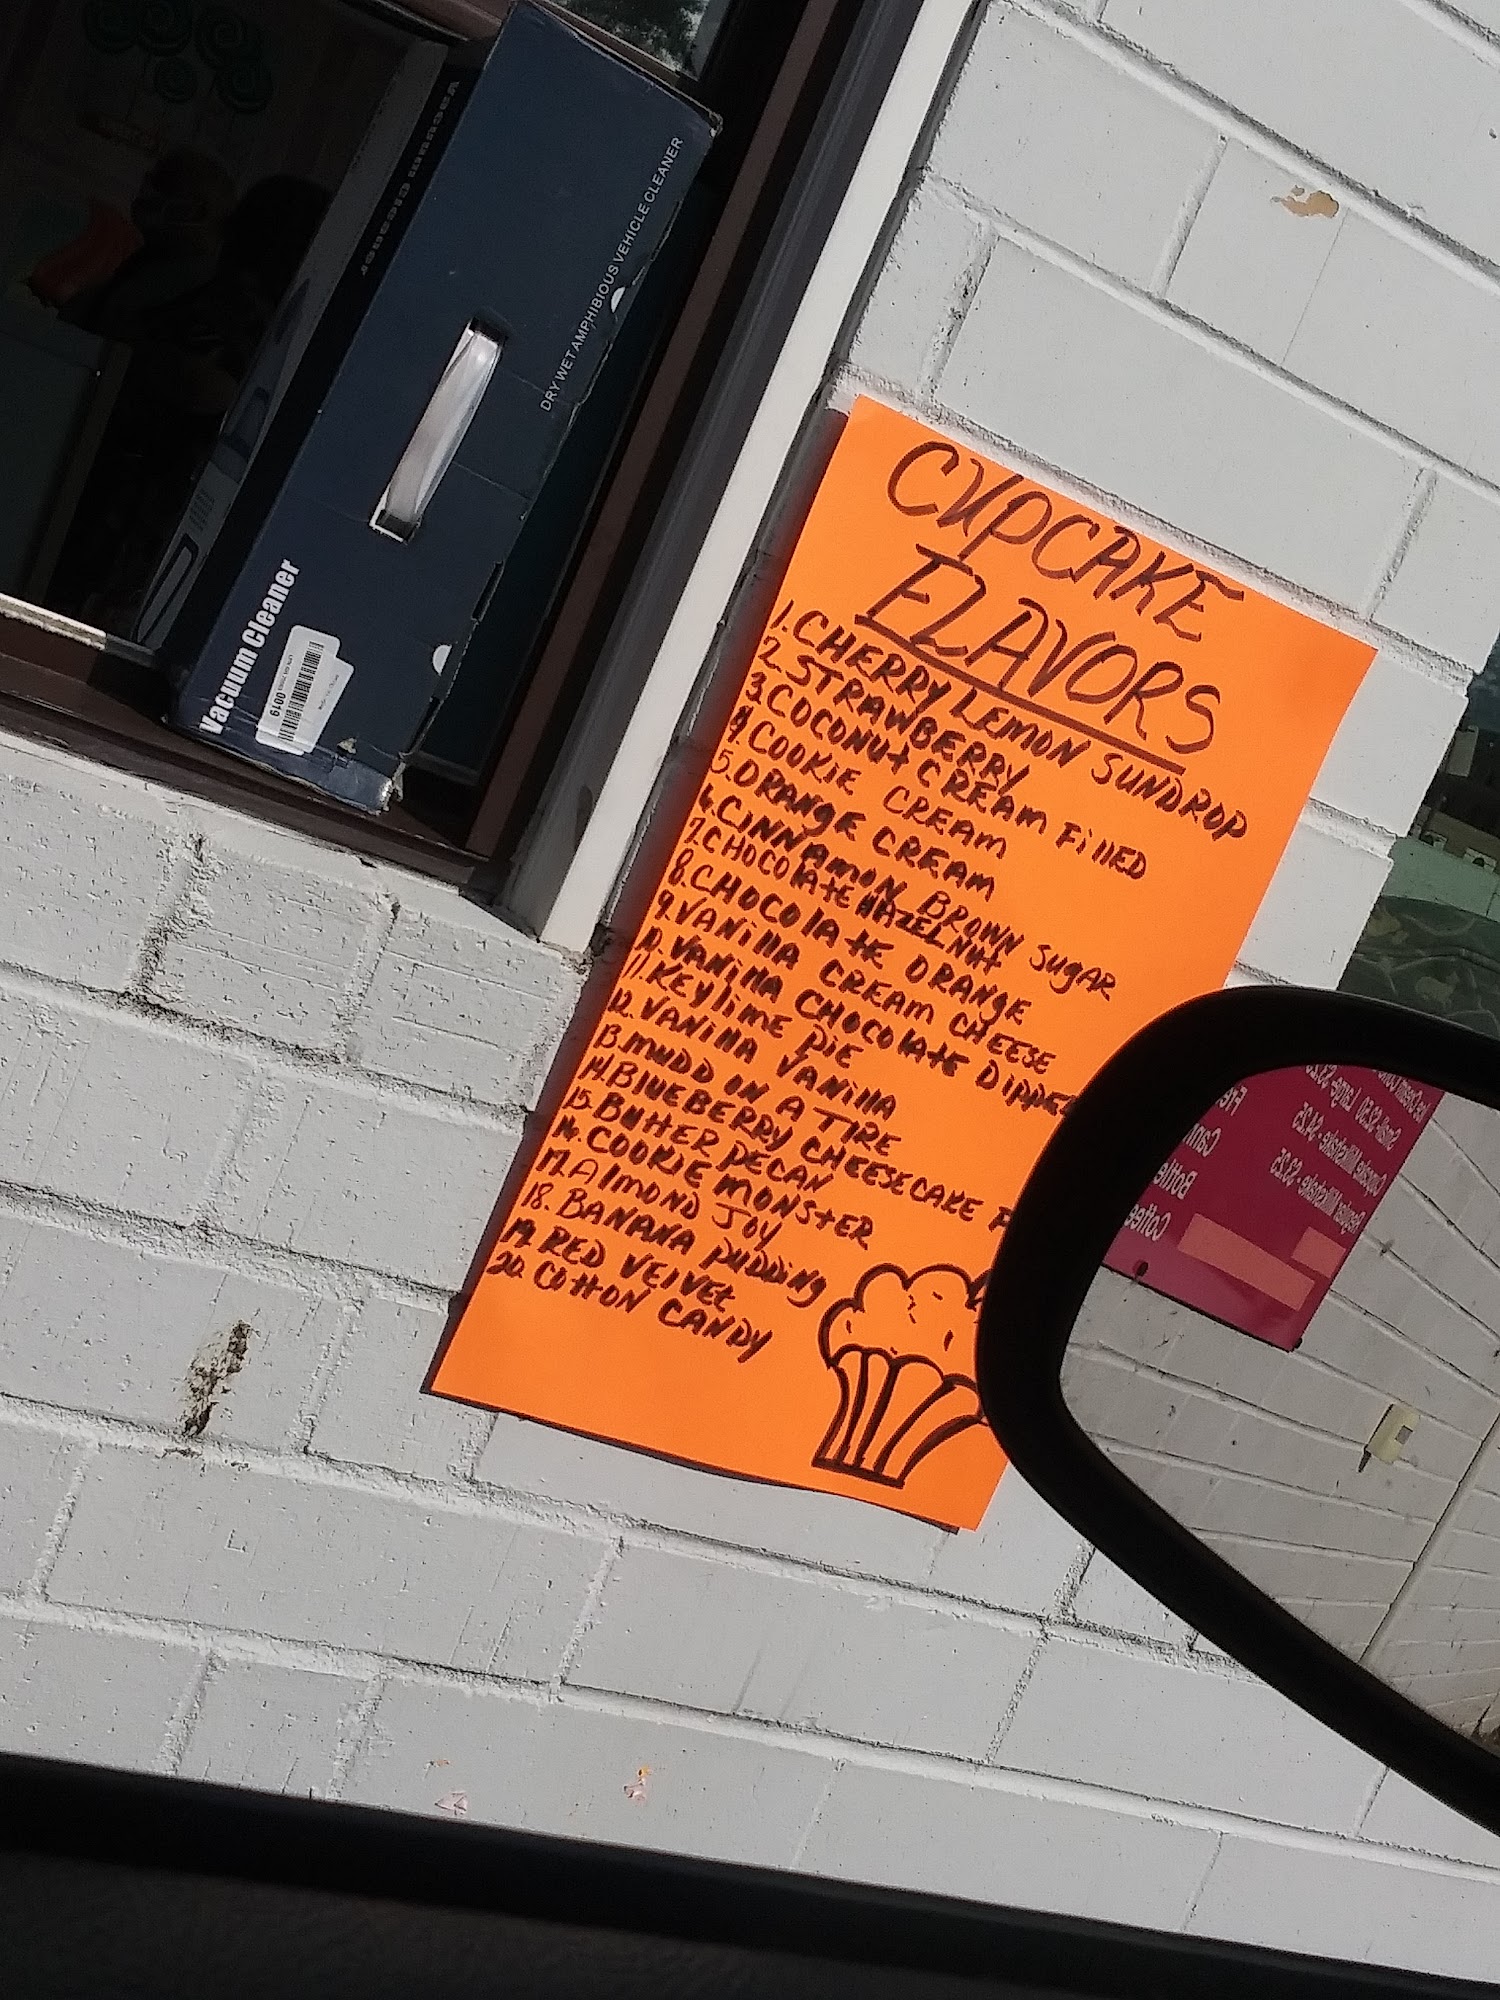 Vacuum Cleaner
DRY WET AMPHIBIOUS VEHICLE CLEANER
Vacuum Cleaner
0019
CUPCAKE
FLAVORS
1. CHERRY LEMON SUNDROP
2. STRAWBERRY
3. COCONUT CREAM FILLED
4 COOKIE CREAM
5. ORANGE CREAM
6. CINNAMON BROWN SUGAR
7. CHOCOLATE HAZELNUT
8. CHOCOLATE ORANGE
9. VANILLA CREAM CHEESE
10. VANILLA CHOCOLATE DIPPED
11. KEY LIME PIE
12. VANILLA VANILLA
13. MUDD ON A TIRE
14. BLUEBERRY CHEESECAKE
15. BUTTER PECAN
16. COOKIE MONSTER
17. ALMOND JOY
18. BANANA PUDDING
19. RED VELVET
20. COTTON CANDY
Small- $3.50 Large- $3.25
Cupcake Milkshake - $4.25
Regular Milkshake - $3.25
Coffee